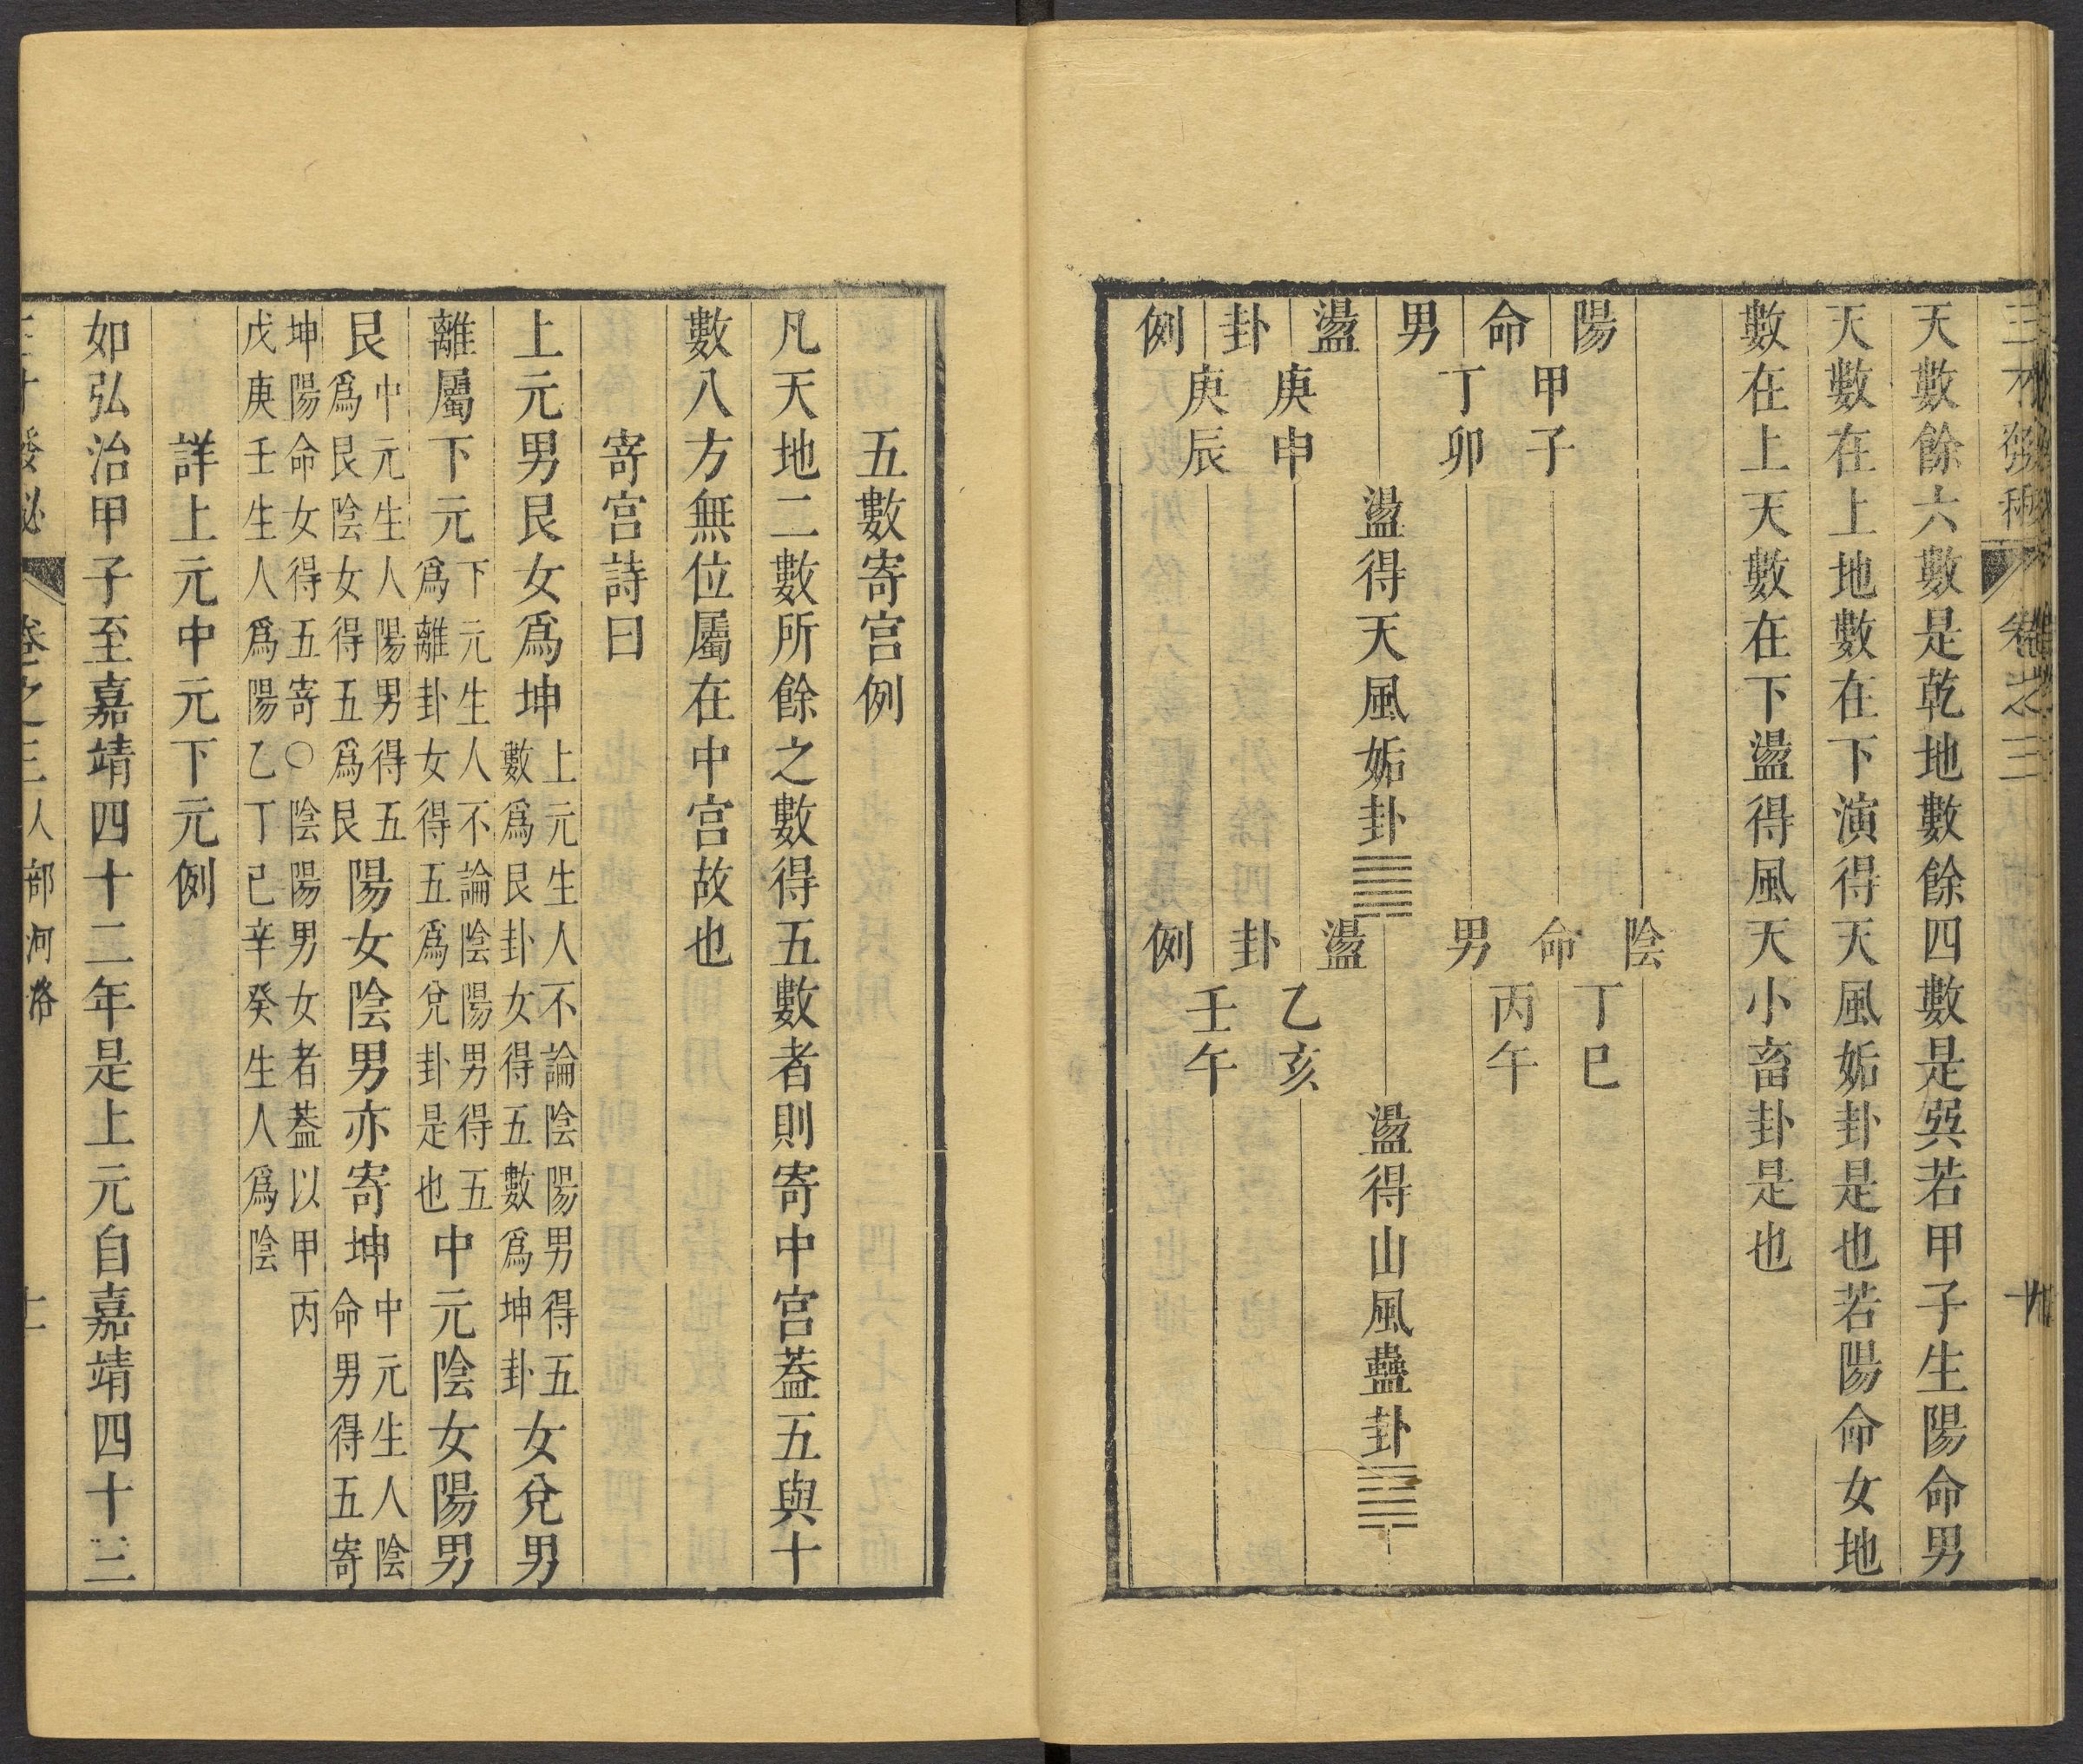 三才發秘 卷之三
天數餘六數是乾地數餘四數是巽若甲子生陽命男
天數在上地數在下演得天風姤卦是也若陽命女地
數在上天數在下盪得風天小畜卦是也
陽命男盪卦例
甲子
丁卯
庚申
庚辰
盪得天風姤卦䷫
陰命男盪卦例
丁巳
丙午
乙亥
壬午
盪得山風蠱卦䷑
五數寄宮例
凡天地二數所餘之數得五數者則寄中宮葢五與十
數八方無位屬在中宮故也
寄宮詩曰
上元男艮女爲坤上元生人不論陰陽男得五數爲艮卦女得五數爲坤卦女兌男
離屬下元下元生人不論陰陽男得五爲離卦女得五爲兌卦是也中元陰女陽男
艮中元生人陽男得五爲艮陰女得五爲艮陽女陰男亦寄坤中元生人陰命男得五寄
坤陽命女得五寄○陰陽男女者葢以甲丙戊庚壬生人爲陽乙丁己辛癸生人爲陰
詳上元中元下元例
如弘治甲子至嘉靖四十二年是上元自嘉靖四十三
三才發秘 卷之三人部河洛